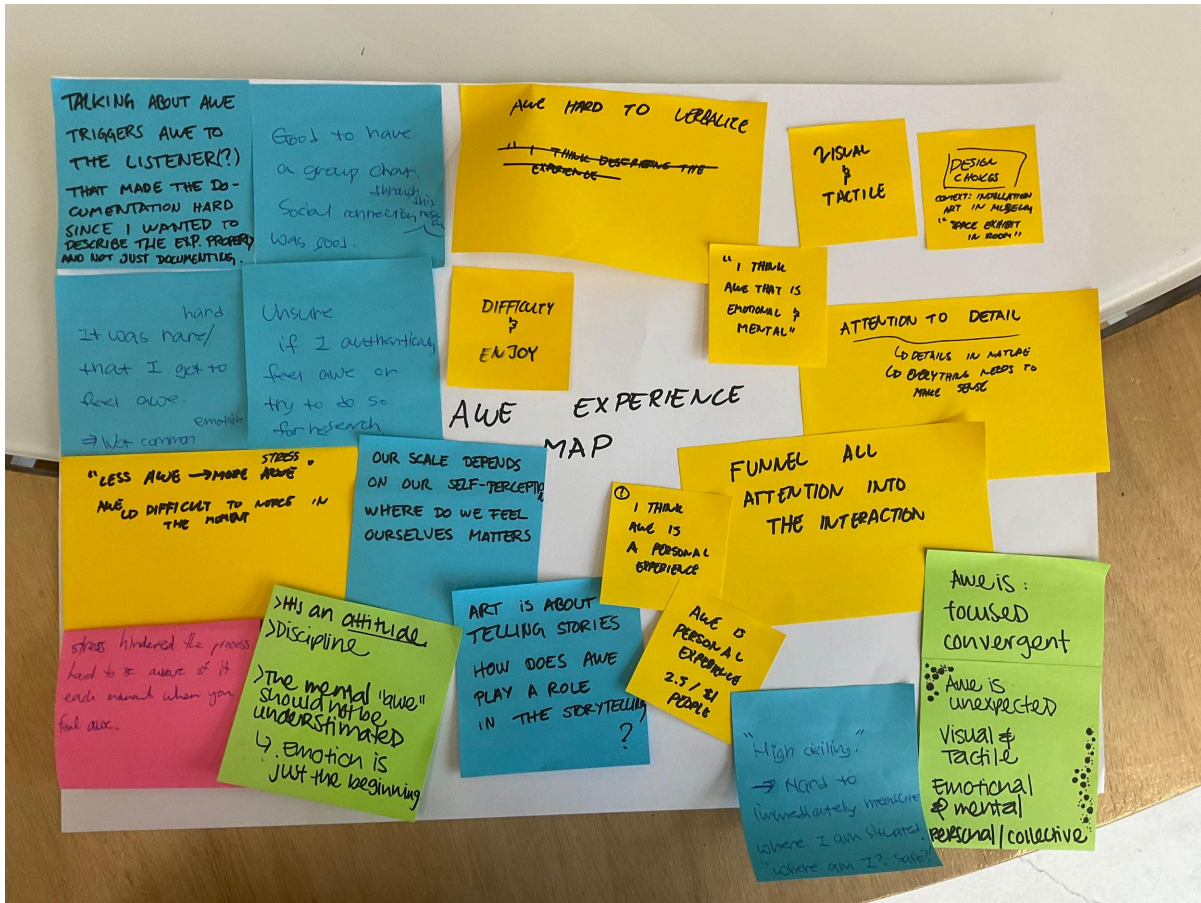 TALKING ABOUT AWE
TRIGGERS AWE TO
THE LISTENER(?)
THAT MADE THE DO-
CUMENTATION HARD
SINCE I WANTED TO
DESCRIBE THE EXP. PROPERLY
AND NOT JUST DOCUMENTING.
Good to have
a group chat.
Social connection through this
was good.
AWE HARD TO VERBALIZE
"I THINK DESCRIBING THE
EXPERIENCE
VISUAL
&
TACTILE
DESIGN
CHOICES
CONTEXT: INSTALLATION
ART IN MUSEUM
"SPACE EXHIBIT
IN ROOM"
hard
It was rare/
that I got to
feel awe.
emotion
⇒ Not common
Unsure
if I authentically
feel awe or
try to do so
for research
DIFFICULTY
&
ENJOY
"I THINK
AWE THAT IS
EMOTIONAL &
MENTAL"
ATTENTION TO DETAIL
↳ DETAILS IN NATURE
↳ EVERYTHING NEEDS TO
MAKE SENSE
AWE EXPERIENCE
MAP
STRESS
"LESS AWE → MORE AWE"
AWE
↳ DIFFICULT TO NOTICE IN
THE MOMENT
OUR SCALE DEPENDS
ON OUR SELF-PERCEPTION
WHERE DO WE FEEL
OURSELVES MATTERS
FUNNEL ALL
ATTENTION INTO
THE INTERACTION
I THINK
AWE IS
A PERSONAL
EXPERIENCE
stress hindered the process
hard to be aware of it
each moment when you
feel awe.
>It's an attitude
>Discipline
>The mental "awe"
should not be
understimated
↳ Emotion is
just the beginning
ART IS ABOUT
TELLING STORIES
HOW DOES AWE
PLAY A ROLE
IN THE STORYTELLING
?
AWE IS
PERSONAL
EXPERIENCE
PEOPLE
"High ceiling."
→ Hard to
immediately measure
where I am situated.
"where am I? safe?"
Awe is:
focused
convergent
Awe is
unexpected
Visual &
Tactile
Emotional
& mental
personal/collective